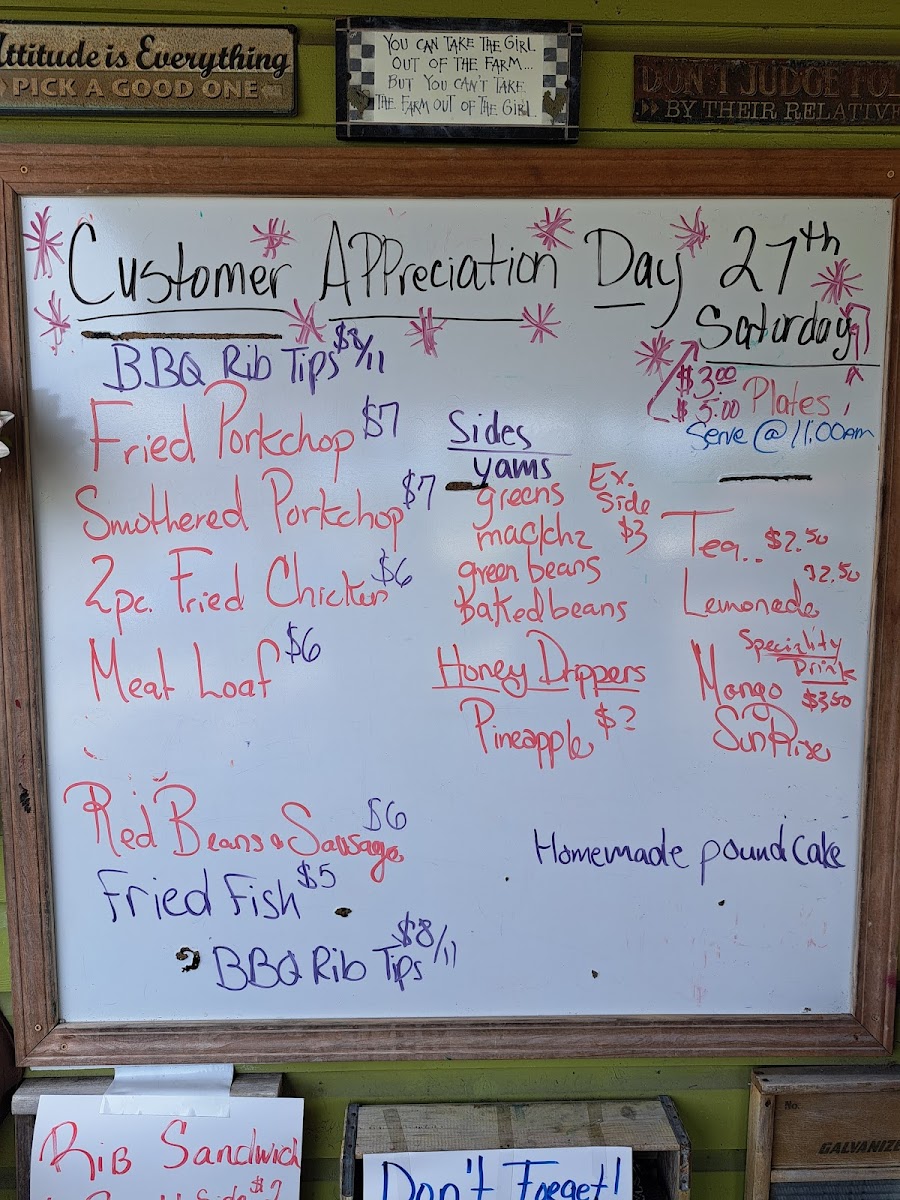 Attitude is Everything
PICK A GOOD ONE
YOU CAN TAKE THE GIRL
OUT OF THE FARM...
BUT YOU CAN'T TAKE
THE FARM OUT OF THE GIRL
DON'T JUDGE
BY THEIR RELATIVE
Customer APPreciation Day 27th
Saturday
$3.00
$5.00 Plates
Serve @ 11:00am
BBQ Rib Tips $8/11
Fried Porkchop $7
Smothered Porkchop $7
2pc. Fried Chicken $6
Meat Loaf $6
Red Beans & Sausage $6
Fried Fish $5
BBQ Rib Tips $8/11
Sides
yams
greens
mac/chz
green beans
Baked beans
Ex.
Side
$3
Honey Drippers
Pineapple $2
Tea.. $2.50
$2.50
Lemonade
Speciality
Drink
$3.50
Mango
SunRise
Homemade pound Cake
Rib Sandwich
Don't Forget!